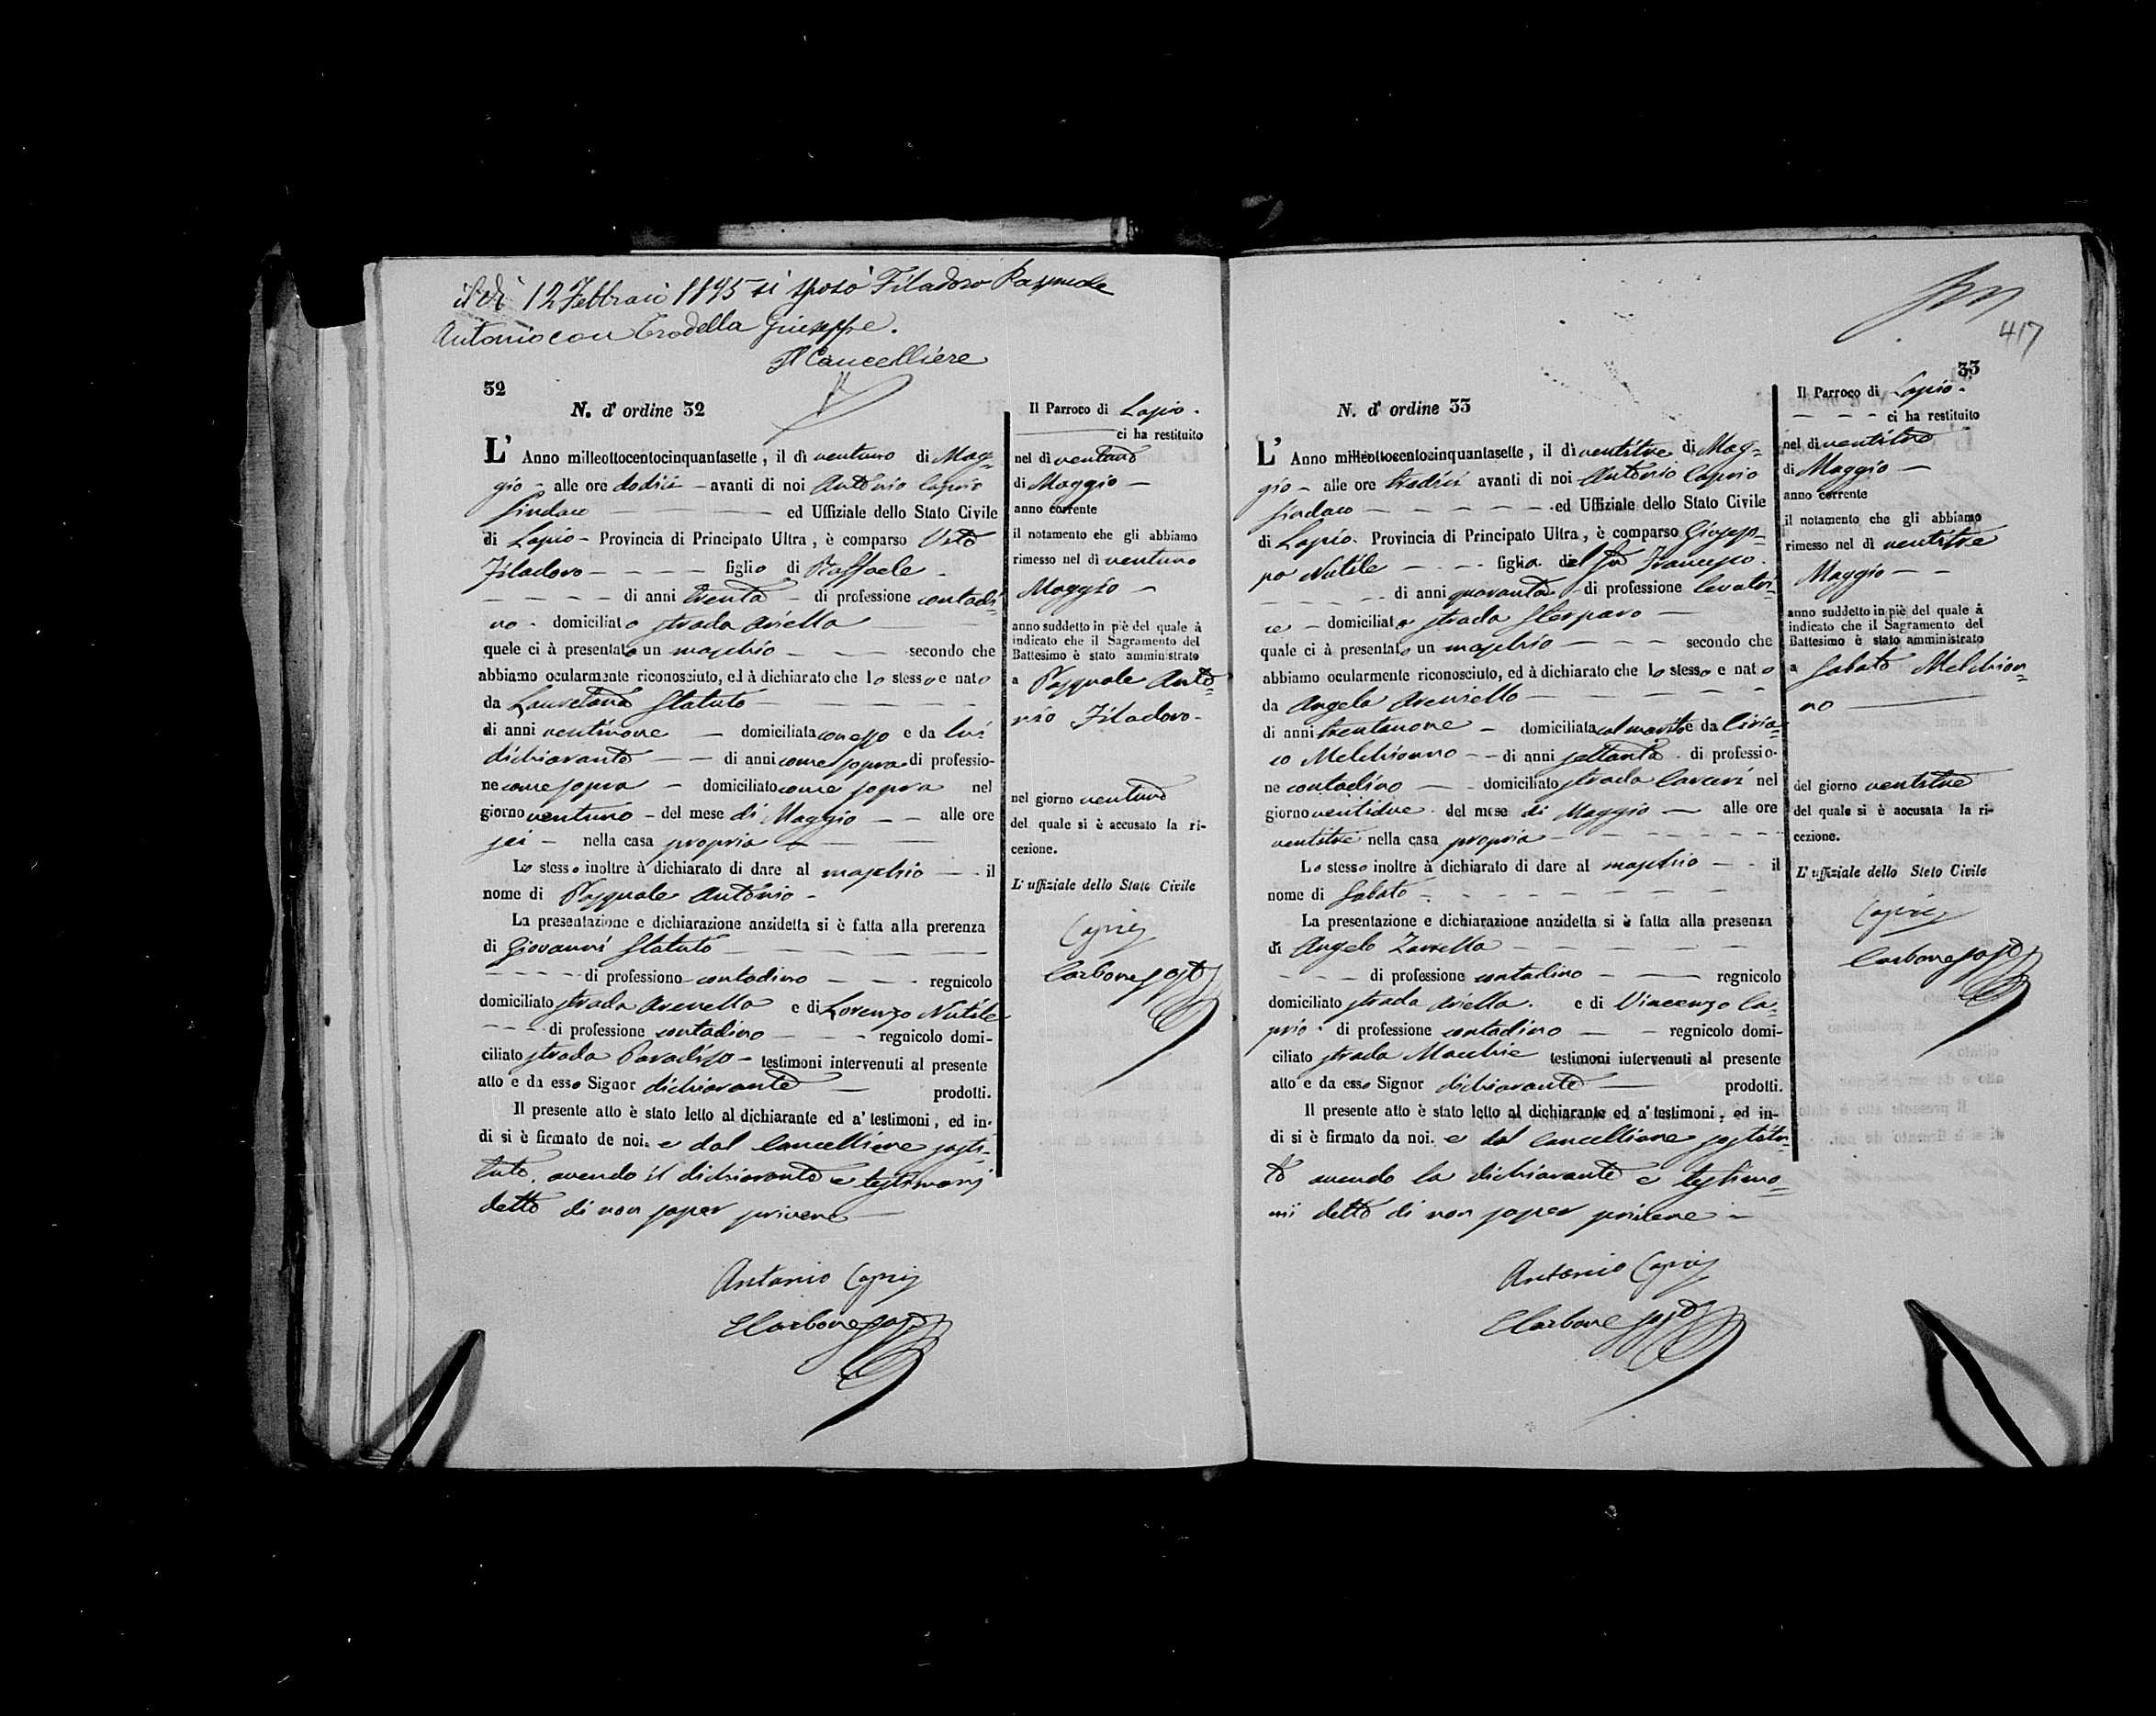 il dì 12 Febbraio 1895 si sposò Filadoro Pasquale
Antonio con Trodella Giuseppe.
Il Cancelliere
32
N. d' ordine 32
L' Anno milleottocentocinquantasette, il dì ventuno di Mag-
gio - alle ore dodici - avanti di noi Antonio Caprio
Sindaco ed Uffiziale dello Stato Civile
di Lapio - Provincia di Principato Ultra, è comparso Vito
Filadoro figlio di Raffaele
di anni trenta - di professione contadi-
no - domiciliato strada Ariella
quele ci à presentato un maschio secondo che
abbiamo ocularmente riconosciuto, ed à dichiarato che lo stesso e nato
da Lauretana Statuto
di anni ventinove - domiciliata con esso e da lui
dichiarante - di anni come sopra di professio-
ne come sopra - domiciliato come sopra nel
giorno ventuno - del mese di Maggio - alle ore
sei - nella casa propria
Lo stesso inoltre à dichiarato di dare al maschio - il
nome di Pasquale Antonio -
La presentazione e dichiarazione anzidetta si è fatta alla prerenza
di Giovanni Statuto
di professiono contadino regnicolo
domiciliato strada e di Lorenzo Nutile
di professione contadino regnicolo domi-
ciliato strada Paradiso - testimoni intervenuti al presente
atto e da esso Signor dichiarante prodotti.
Il presente atto è stato letto al dichiarante ed a' testimoni, ed in-
di si è firmato de noi. e dal Cancelliere sosti-
tuto, avendo il dichiarante e testimonj
detto di non saper scrivere
Antonio Caprio
Carbone sosto
Il Parroco di Lapio.
ci ha restituito
nel dì ventuno
di Maggio -
anno corrente
il notamento che gli abbiamo
rimesso nel dì ventuno
Maggio -
anno suddetto in piè del quale à
indicato che il Sagramento del
Battesimo è stato amministrato
a Pasquale Anto-
nio Filadoro.
nel giorno ventuno
del quale si è accusato la ri-
cezione.
L' uffiziale dello Stato Civile
Caprio
Carbone sosto
417
33
N. d' ordine 33
L' Anno milleottocentocinquantasette, il dì ventitre di Mag-
gio - alle ore tredici avanti di noi Antonio Caprio
Sindaco ed Uffiziale dello Stato Civile
di Lapio. Provincia di Principato Ultra, è comparso Giusep-
pa Nutile figlia del fu Francesco
di anni quaranta - di professione levatri-
ce - domiciliata strada Sterparo
quale ci à presentato un maschio secondo che
abbiamo ocularmente riconosciuto, ed à dichiarato che lo stesso e nato
da Angela
di anni trentanove - domiciliata col marito e da Ciria-
co Melchionno - di anni settanta di professio-
ne contadino - domiciliato strada Carceri nel
giorno ventidue del mese di Maggio - alle ore
ventitre nella casa propria
Lo stesso inoltre à dichiarato di dare al maschio - il
nome di Sabato
La presentazione e dichiarazione anzidetta si è fatta alla presenza
di Angelo Zarrella
di professione contadino regnicolo
domiciliato strada Ariella. e di Vincenzo Ca-
prio di professione contadino - regnicolo domi-
ciliato strada Macchie testimoni intervenuti al presente
atto e da esso Signor dichiarante prodotti.
Il presente atto è stato letto al dichiarante ed a' testimoni, ed in-
di si è firmato da noi. e dal Cancelliere sostitu-
to avendo la dichiarante e testimo-
nii detto di non saper scrivere -
Antonio Caprio
Carbone sosto
Il Parroco di Lapio.
ci ha restituito
nel dì ventitre
di Maggio -
anno corrente
il notamento che gli abbiamo
rimesso nel dì ventitre
Maggio -
anno suddetto in piè del quale à
indicato che il Sagramento del
Battesimo è stato amministrato
a Sabato Melchion-
no
del giorno ventitre
del quale si è accusata la ri-
cezione.
L' uffiziale dello Steto Civile
Caprio
Carbone sosto